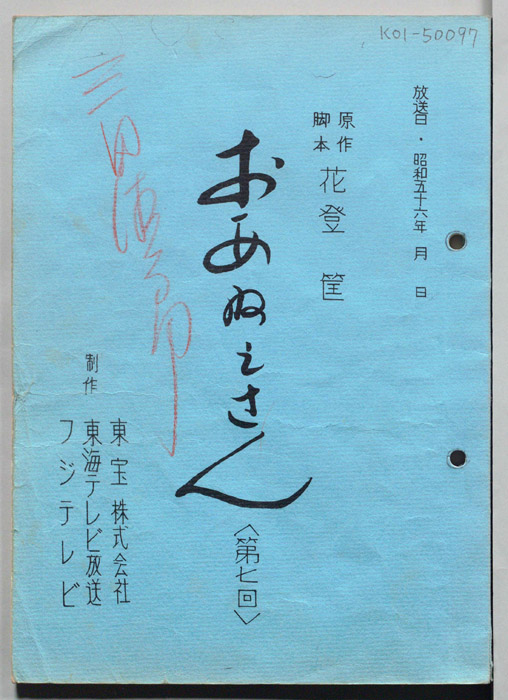 K01-50097
放送日・昭和五十六年　月　日
原作
脚本
花登　筐
おあねえさん
〈第七回〉
制作
東宝株式会社
東海テレビ放送
フジテレビ